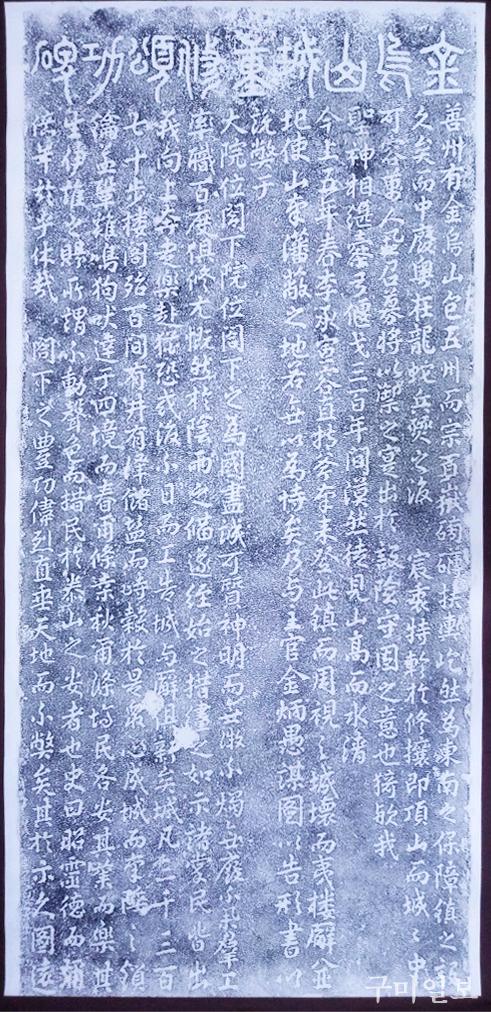 金烏山城重修頌功碑
善州有金烏山包五州而宗百嶽磅礴扶輿屹然爲東南之保障鎭之設
久矣而中廢粤在龍蛇兵燹之後 宸衷特軫於修攘即頂山而城城中
可容萬人召募將以禦之寔出於設險守國之意也猗歟我
聖神相繼櫜弓偃戈三百年間漠然徒見山高而水淸
今上五年春李承宣容直特來登此鎭而周視之城壞而夷樓廨並
圯使山東藩蔽之地若無以爲恃矣乃与主官金炳愚謀圖以告形書以
說獘于
大院位閤下院位閤下之爲國盡誠可質神明而無微不燭無廢不興羣工
率職百度俱修尤慨然於陰雨之備遂經始之措畫之如示諸掌民皆出
義向上令走樂赴猶恐或後不日而工告城与廨俱新矣城凡二千三百
七十步樓閣殆百間有井有澤儲盈而時穀於是衆心成城而之頌
鳴狗吠達于四境而春而條桑秋而滌場民各安其業而樂其
生伊誰之賜所謂不動聲色而措民於泰山之安者也史曰昭靈德而彌
於乎休哉 閤下之豊功偉烈直垂天地而不獘矣其於示久圖遠
구미일보